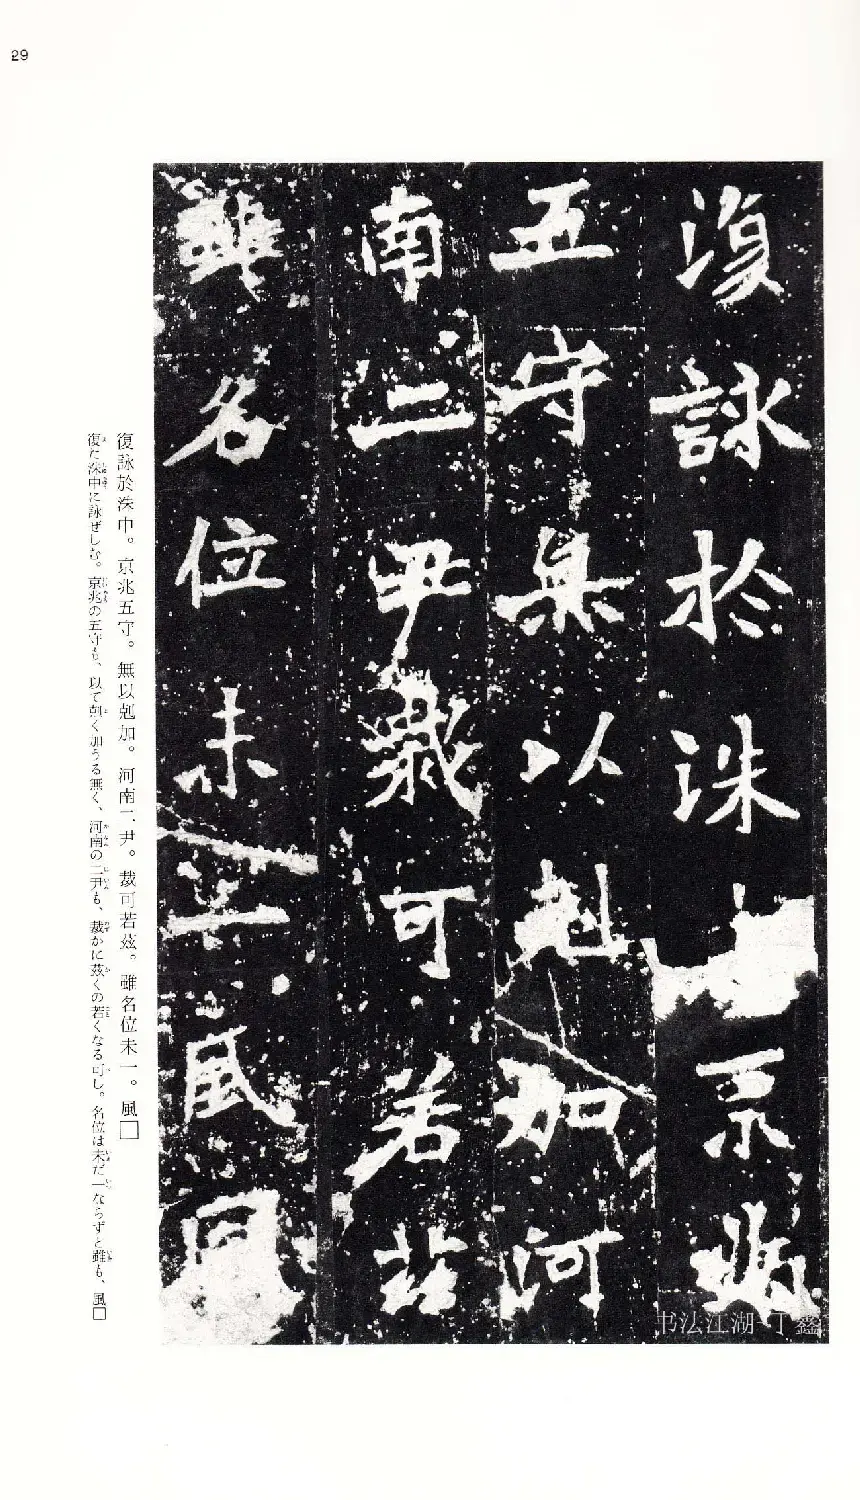 29
復詠於洙中京兆
五守無以剋加河
南二尹裁可若茲
雖名位未一風
復詠於洙中。京兆五守。無以剋加。河南二尹。裁可若茲。雖名位未一。風□
復た洙中に詠ぜしむ。京兆の五守も、以て剋く加うる無く、河南の二尹も、裁かに茲くの若くなる可し。名位は未だ一ならずと雖も、風□
书法江湖-丁鑫